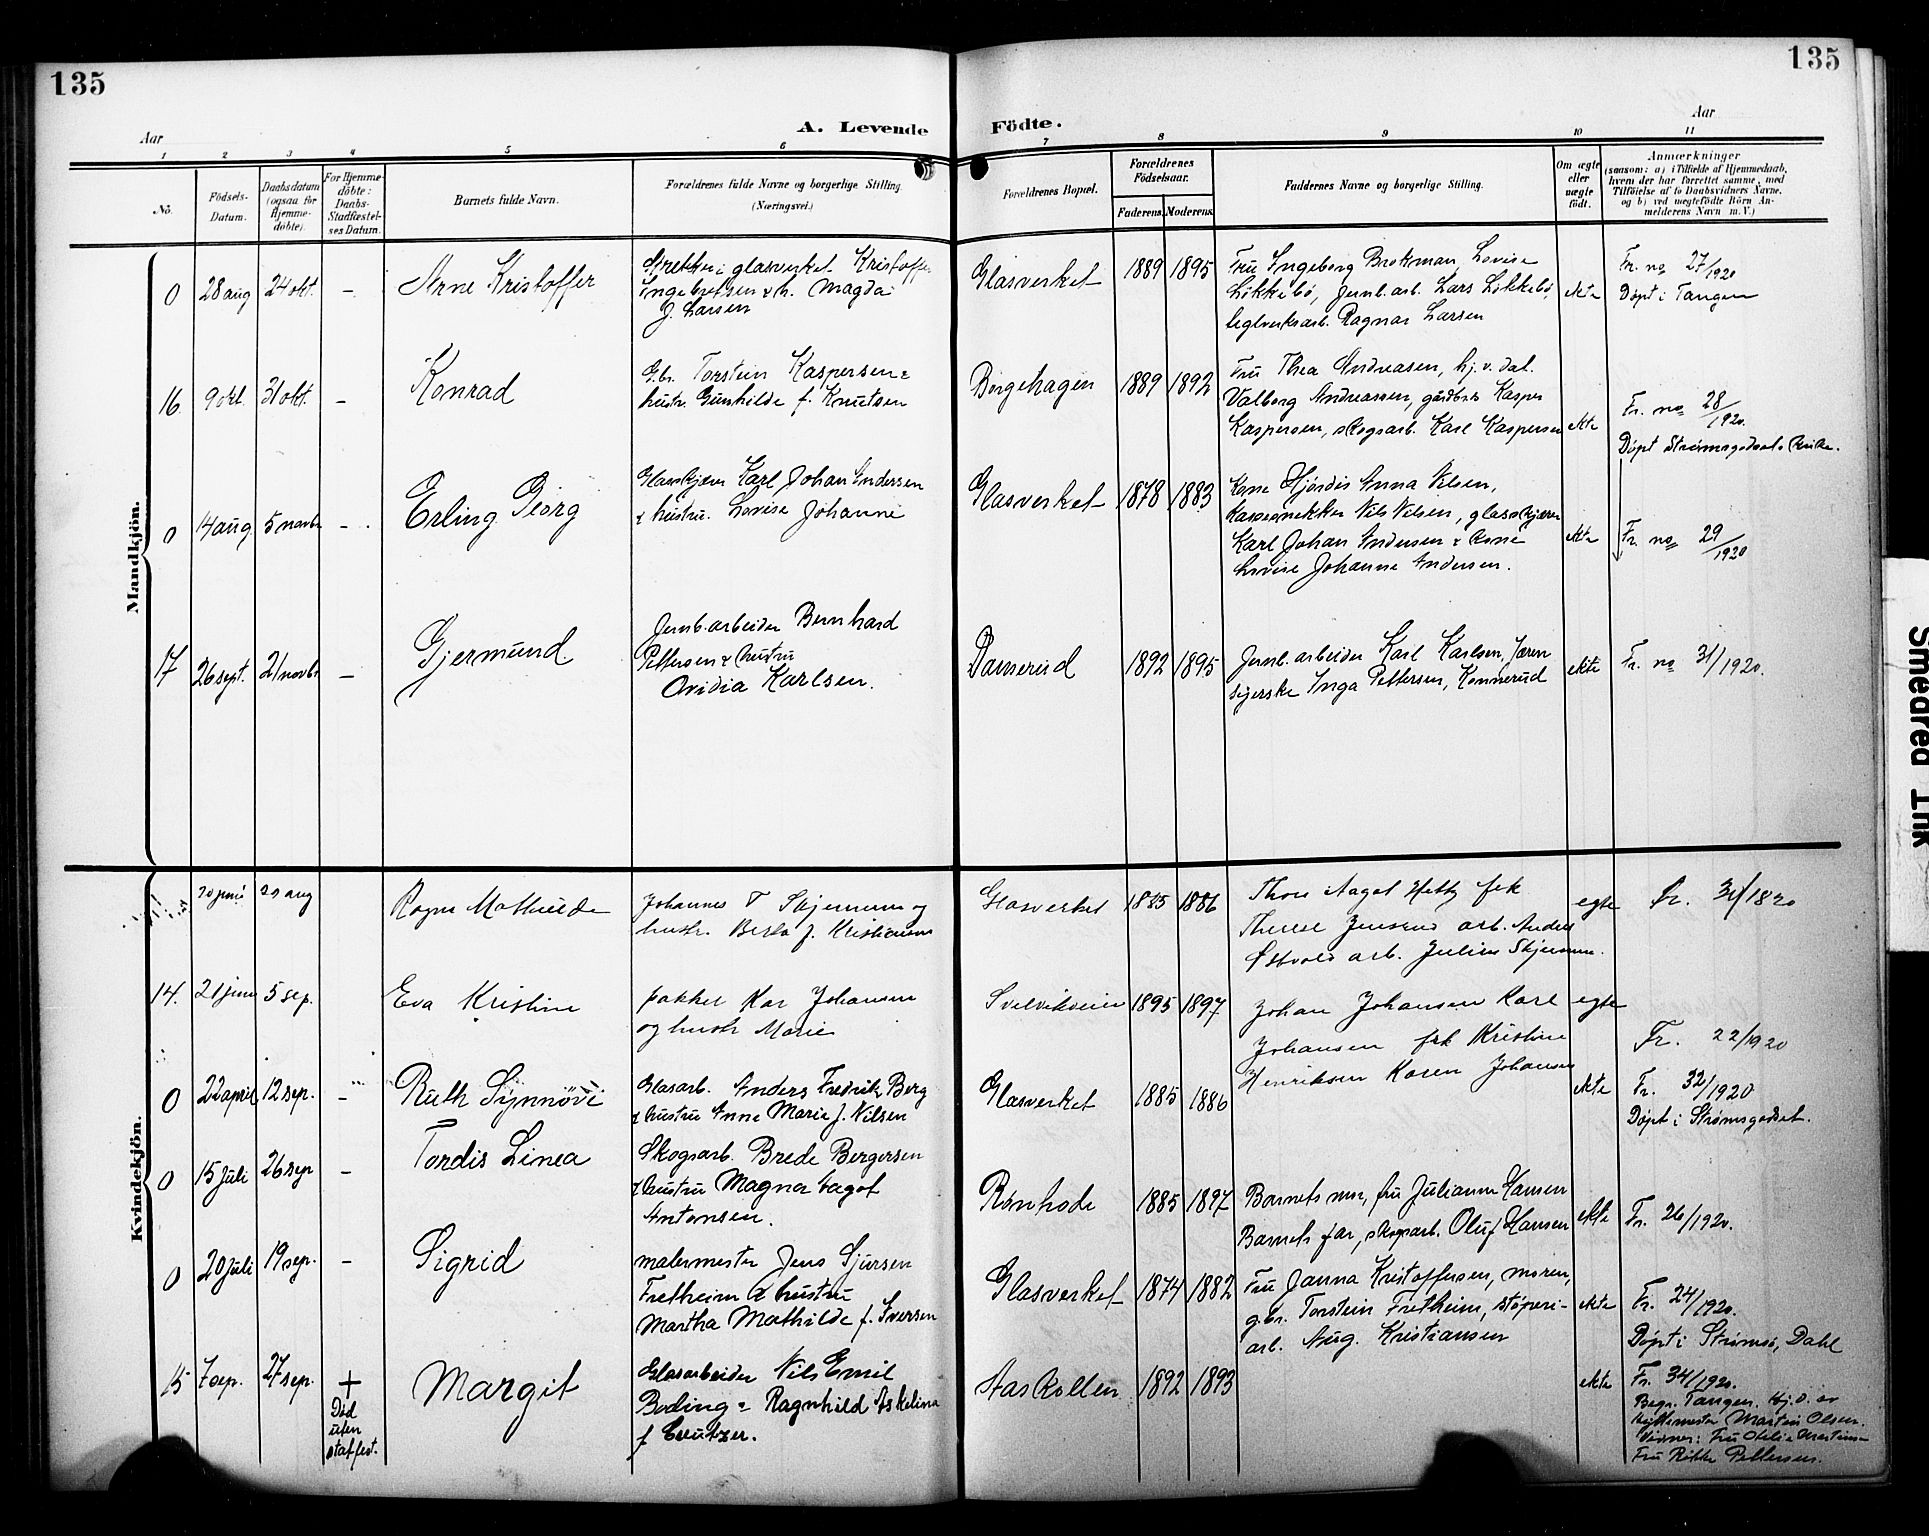 135
135
A. Levende Födte.
Aar
Aar
1 2 3 4 5 6 7 8 9 10 11
No.
Födsels-Datum.
Daabsdatum (ogsaa for Hjemme-döbte).
For Hjemme-döbte: Daabs-Stadfæstel-ses Datum.
Barnets fulde Navn.
Forældrenes fulde Navne og borgerlige Stilling.
(Næringsvei.)
Forældrenes Bopæl.
Forældrenes Födselsaar.
Faderens. Moderens.
Faddernes Navne og borgerlige Stilling.
Om ægte eller uægte født.
Anmærkninger
(saasom: a) i Tilfælde af Hjemmedaab, hvem der har forrettet samme, med Tilföielse af to Daabsvidners Navne, og b) ved uægtefödte Börn An-melderens Navn m. V.)
Mandkjön.
0 28 aug 24 okt. – Arne Kristoffer
i glasverket Kristoffer
Ingebretsen & h. Magda
J. Larsen
Glasverket 1889 1895
Fru Ingeborg Brekman, Lovise
Løkkebö, Jernb. arb. Lars Løkkebö,
teglverksarb. Ragnar Larsen
ekte
Fr. no 27/1920
Døpt i Tangen
16 9 okt. 31 okt. – Konrad
G.br. Torstein Kaspersen &
hustr. Gunhilde f. Knutsen
Børgehagen 1889 1892
Fru Thea Andreasen, hj. v. dat.
Valborg Andreassen, gårdbr. Kasper
Kaspersen, skogsarb. Karl Kaspersen
ekte
Fr. no 28/1920.
Døpt Strømsgodset Kirke.
0 14 aug. 5 novbr – Erling Georg
Glasskjærer Karl Johan Andersen
& hustru. Lovise Johanne
Glasverket 1878 1883
Kone Hjørdis Anna Nilsen,
Nils Nilsen, glasskjærer
Karl Johan Andersen & kone
Lovise Johanne Andersen.
ekte
Fr. no 29/1920
17 26 sept. 21 novbr. – Gjermund.
Jernb. arbeider Bernhard
Pettersen & hustru
Ovidia Karlsen.
Damerud 1892 1895
Jernb. arbeider Karl Karlsen,
Inga Pettersen, Konnerud
ekte
Fr. no 31/1920.
Kvindekjön.
20 juni 29 aug
Johannes T Skjennum og
hustr. Berta f. Kristiansen
Glasverket 1885 1886
Therese Jensen arb. Anders
Østvold arb. Julius Skjennum.
egte
Fr. 31/1820
14. 21 juni 5 sep. Eva Kristine
pakker Kar Johansen
og hustr Marie
Svelvikveien 1895 1897
Johan Johansen Karl
Johansen frk Kristine
Henriksen Karen Johansen
egte
Fr. 22/1920
0 22 april 12 sep. – Ruth Synnøve
Glasarb. Anders Fredrik Berg
& hustru Anne Marie f. Nilsen
Glasverket 1885 1886
ekte
Fr. 32/1920
Døpt i Strømsgodset.
0 15 juli 26 sep – Tordis Linea
Skogsarb. Brede Bergersen
& hustru Magna Aagot
Antonsen.
1885 1897
Barnets mor, fru Julianne Hansen
Barnets far, skogsarb. Oluf Hansen
ekte
Fr. 26/1920.
0 20 juli 19 sep. – Sigrid
malermester Jens Sjursen
Fretheim & hustru
Martha Mathilde f. Iversen
Glasverket 1874 1882
Fru Janna Kristoffersen, moren,
g.br. Torstein Fretheim, støperi-
arb. Aug. Kristiansen
ekte
Fr. 24/1920.
Døpt i Strømsö, Dahl
15 7 sep. 27 sep. +
Død
uten
staffest.
Margit
Glasarbeider Nils Emil
Boding & Ragnhild Askelina
f Creutzer.
Aaskollen 1892 1893
ekte
Fr. 34/1920.
Begr. Tangen. Hj. d. av
Martin Olsen.
Vidner: Fru
Fru Rikke Pettersen.
Smeared Ink